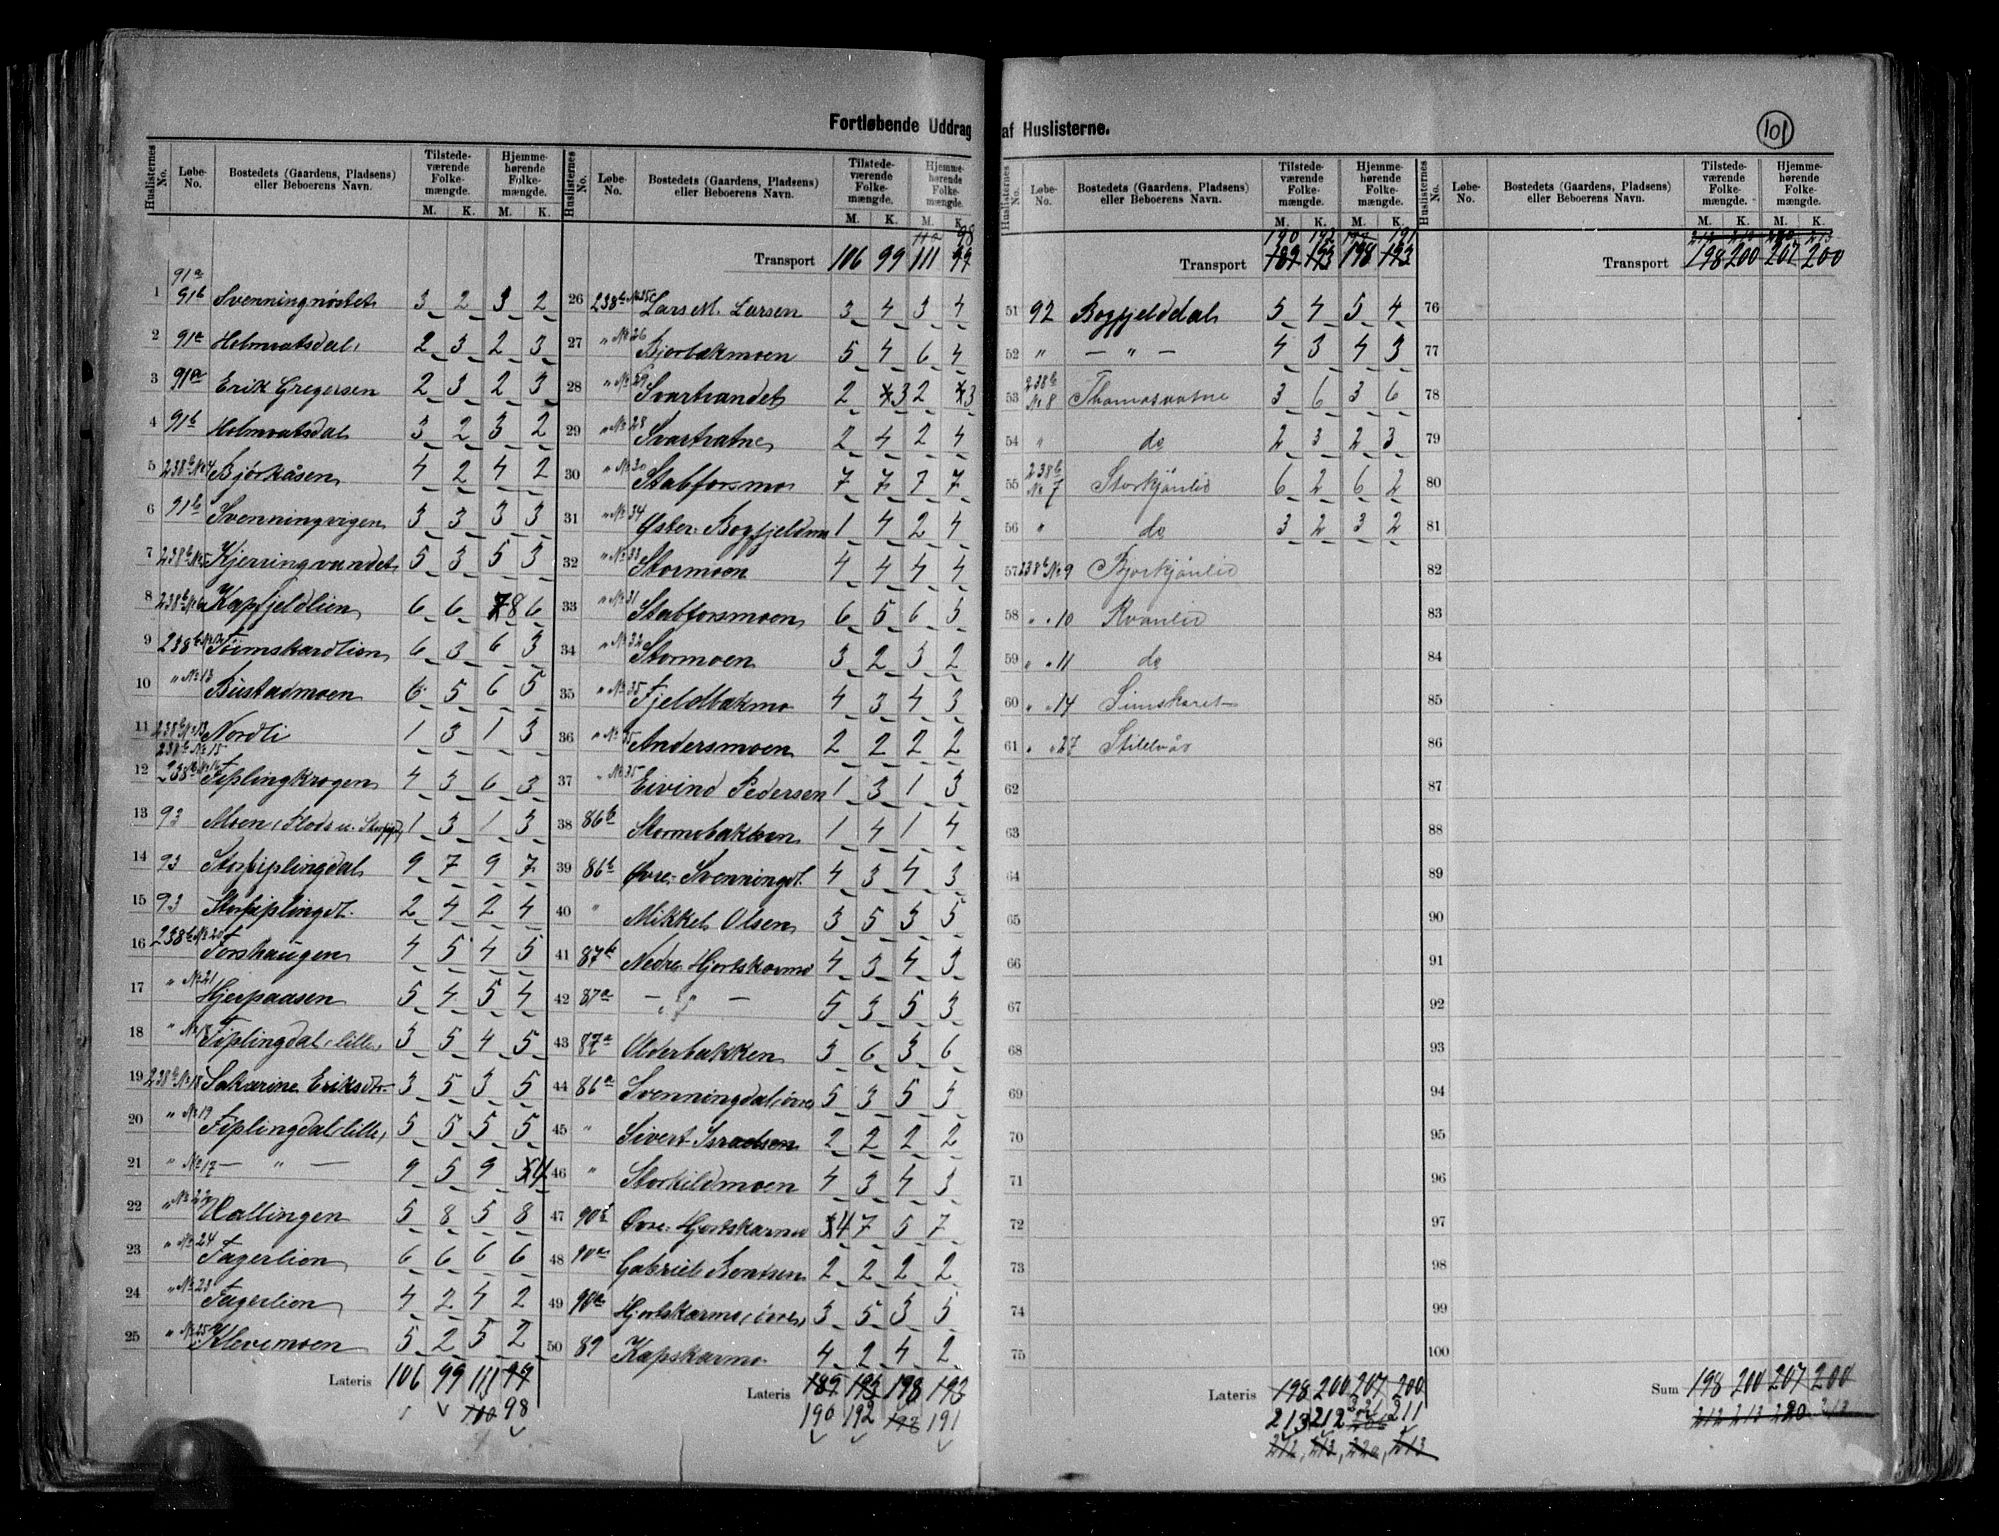 Fortløbende Uddrag af Huslisterne.
101
Huslisternes No. Løbe-No. Bostedets (Gaardens, Pladsens) eller Beboerens Navn. Tilstedeværende Folkemængde. M. K. Hjemmehørende Folkemængde. M. K.
91a
1 91b Svenningnöstet 3 2 3 2
2 91a Holmvatsdal 2 3 2 3
3 91a Erik Gregersen 2 3 2 3
4 91b Holmvatsdal 3 2 3 2
5 238b No 4 Björkåsen 4 2 4 2
6 91b Svenningvigen 3 3 3 3
7 238b No 5 Kjerringvandet 5 3 5 3
8 238b No 6 Kapfjeldlien 6 6 8 6
9 238b No 12 Tömskardlien 6 3 6 3
10 " No 13 Bustadmoen 6 5 6 5
11 238b No 13 Nordli 1 3 1 3
238b No 15
12 238b No 16 Fiplingkrogen 4 3 6 3
13 93 Moen, 1 3 1 3
14 93 Storfiplingdal 9 7 9 7
15 93 Storfiplingd. 2 4 2 4
16 238b No 20 Forshaugen 4 5 4 5
17 " No 21 Hjerpaasen 5 4 5 4
18 " No 18 Fiplingdal, lille, 3 5 4 5
19 238b No 18 Sakarine Eriksdtr. 3 5 3 5
20 " No 19 Fiplingdal, lille, 5 5 5 5
21 " No 17 — " — 9 5 9 4
22 " No 22 Hallingen 5 8 5 8
23 " No 24 Fagerlien 6 6 6 6
24 " No 23 Fagerlien 4 2 4 2
25 " No 25 Klevemoen 5 2 5 2
Lateris 106 99 111 99
110 98
Huslisternes No. Løbe-No. Bostedets (Gaardens, Pladsens) eller Beboerens Navn. Tilstedeværende Folkemængde. M. K. Hjemmehørende Folkemængde. M. K.
110 98
Transport 106 99 111 99
26 238b No 25 Lars M. Larsen 3 4 3 4
27 " No 26 Bjortbakmoen 5 4 6 4
28 " No 29 Svartvandet 2 3 2 3
29 " No 28 Svartvatne 2 4 2 4
30 " No 30 Stabforsmo 7 7 7 7
31 " No 34 Yster-Bogfjeldmo 1 4 2 4
32 " No 33 Stormoen 4 4 4 4
33 " No 31 Stabforsmoen 6 5 6 5
34 " No 32 Stormoen 3 2 3 2
35 " No 35 Fjeldbakmo 4 3 4 3
36 " No 35 Andersmoen 2 2 2 2
37 " No 35 Eivind Pedersen 1 3 1 3
38 86b Stormobakken 1 4 1 4
39 86b Övre-Svenningd. 4 3 4 3
40 " Mikkel Olsen 3 5 3 5
41 87b Nedre Hjortskarmo 4 3 4 3
42 87a — " — 5 3 5 3
43 87a Olderbakken 3 6 3 6
44 86a Svenningdal, övre 5 3 5 3
45 " Sivert Israelsen 2 2 2 2
46 " Storkildmoen 4 3 4 3
47 90b Övre-Hjortskarmo 4 7 5 7
48 90a Gabriel Bentsen 2 2 2 2
49 90a Hjortskarmo, övre, 3 5 3 5
50 89 Kapskarmo 4 2 4 2
Lateris 189 193 198 193
190 192 198 191
Huslisternes No. Løbe-No. Bostedets (Gaardens, Pladsens) eller Beboerens Navn. Tilstedeværende Folkemængde. M. K. Hjemmehørende Folkemængde. M. K.
190 192 197 191
Transport 189 193 198 193
51 92 Bogfjelddal 5 4 5 4
52 " — " — 4 3 4 3
53 238b No 8 Thomasvatne 3 6 3 6
54 " do 2 3 2 3
55 238b No 7 Storkjönlid 6 2 6 2
56 " do 3 2 3 2
57 238b No 9 Bjorkjönlid
58 " " 10 Kvanlid
59 " " 11 do
60 " " 14 Simskaret
61 " " 27 Stillelvås
62
63
64
65
66
67
68
69
70
71
72
73
74
75
Lateris 198 200 207 200
213 212 211
212, 213, 220, 213
Huslisternes No. Løbe-No. Bostedets (Gaardens, Pladsens) eller Beboerens Navn. Tilstedeværende Folkemængde. M. K. Hjemmehørende Folkemængde. M. K.
212 213 220 213
Transport 198 200 207 200
76
77
78
79
80
81
82
83
84
85
86
87
88
89
90
91
92
93
94
95
96
97
98
99
100
Sum 198 200 207 200
212 213 220 213